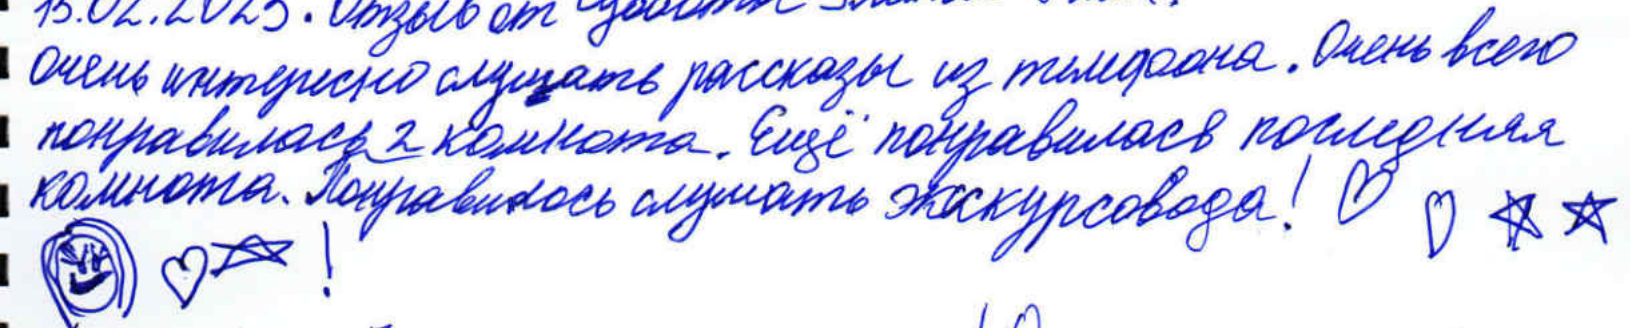 15.02.2023. Отзыв от
Очень интересно слушать рассказы из телефона. Очень всего
понравилась 2 комната. Ещё понравилась последняя
комната. Понравилось слушать экскурсовода!
!